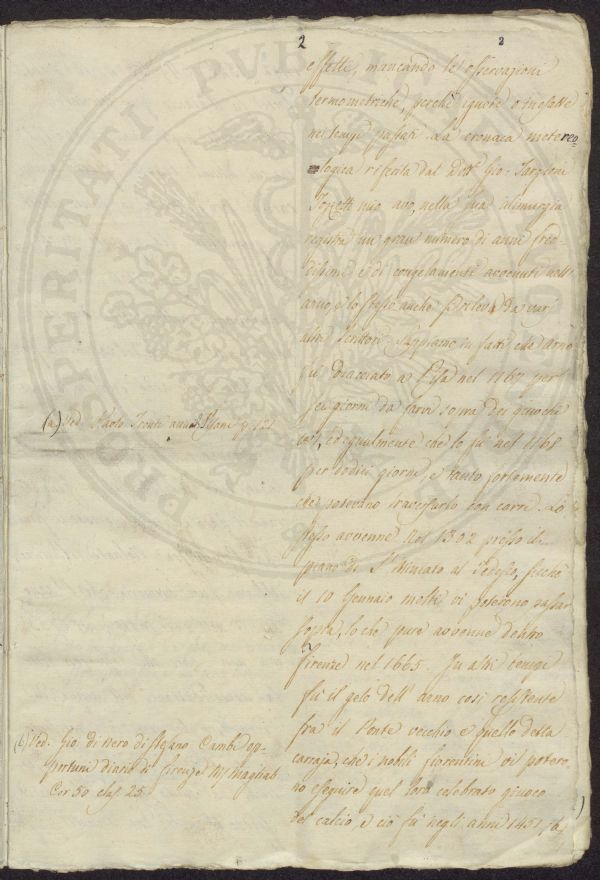 2 2
effetti, mancando le osservazioni
termometriche, perchè ignote o inesatte
nei tempi passati. La cronaca metereo
logica riferita dal Dott. Gio. Targioni
Tozzetti mio avo, nella sua alimurgia
registra un gran numero di anni fred-
dissimi e di congelamenti avvenuti nell'
arno, e lo stesso anche si rileva da varj
altri scrittori. Sappiamo in fatti che Arno
fù diacciato a Pisa nel 1167 per
sei giorni da farvi sopra dei giuochi
ed egualmente che lo fu nel 1168
per dodici giorni, e tanto fortemente
che potevano tracciarlo con carra. Lo
stesso avvenne nel 1302 presso il
piano di S. Miniato al Tedesco, sicchè
il 10 Gennaio molti vi poterono passar
sopra, lo chè pure avvenne dentro
firenze nel 1665. In altri tempi
fu il gelo dell' arno così resistente
fra il Ponte vecchio e quello della
carraja, che i nobili fiorentini vi potero-
no eseguire quel loro celebrato giuoco
del calcio, e ciò fu negli anni 1451, (b)
(a) Ved. Paolo Tronci annali Pisani p.
(b) Ved. Gio. di Nero di Stefano Cambi op-
portuni diario di firenze MS Magliab.
Cod 50 clas 25
PROSPERITATI PVBLICAE